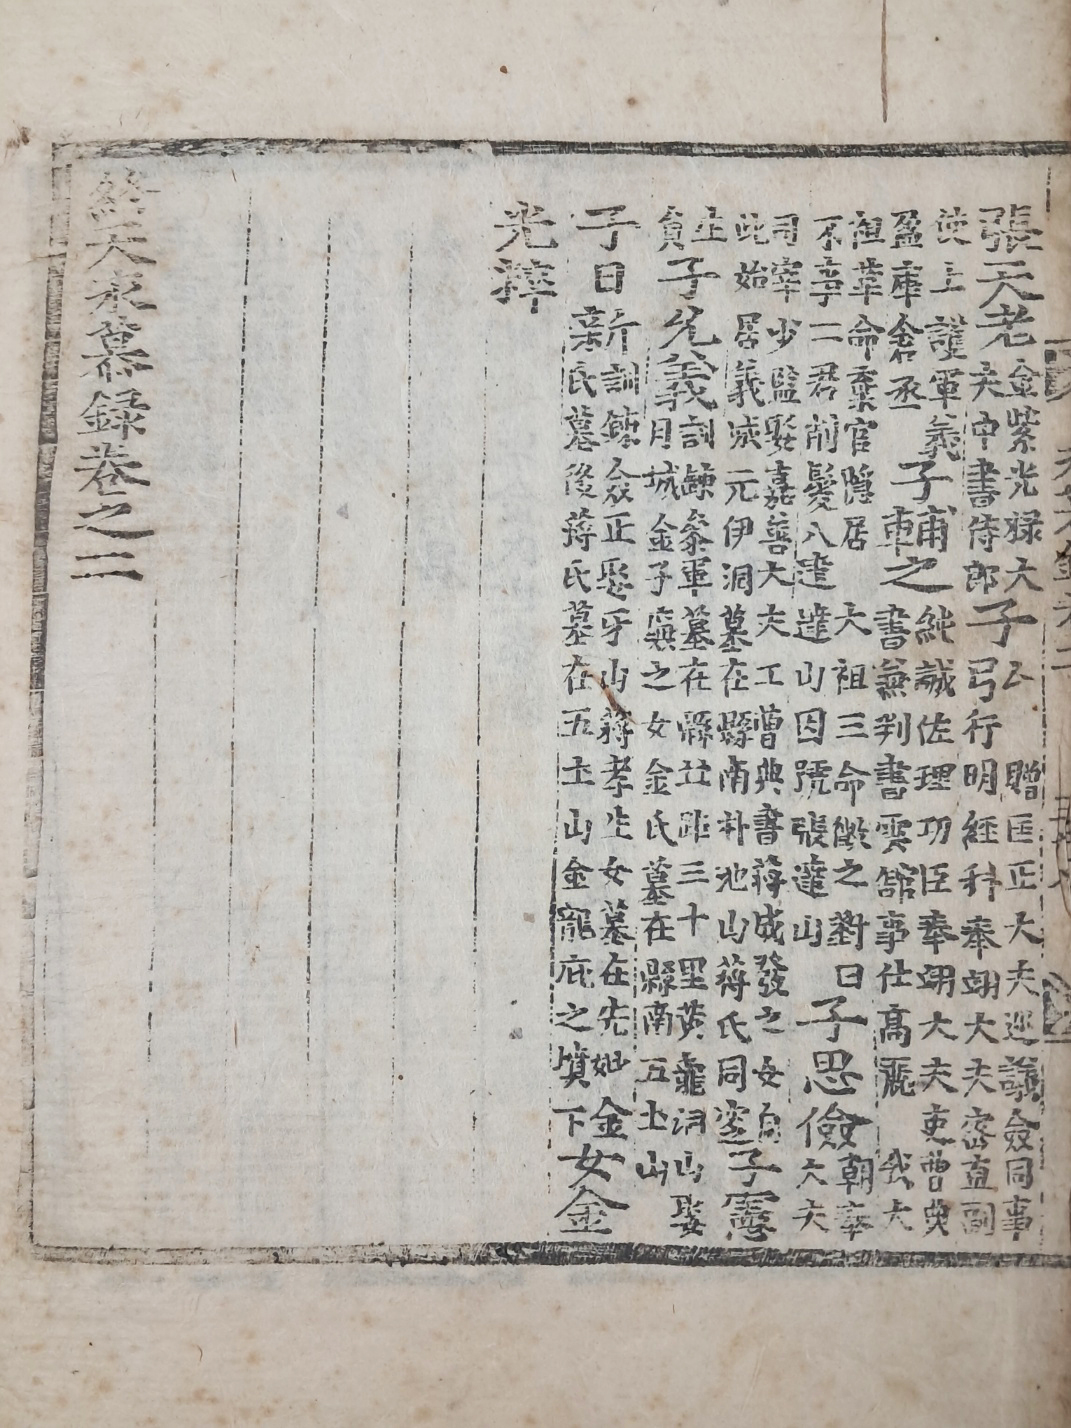 張天老金紫光祿大
夫中書侍郎子公 贈匡正大夫巡議僉同事
弓行明經科奉翊大夫密直副
使上護軍義
盈庫舍丞子輔之純誠佐理功臣奉翊大夫吏曹典
書兼判書雲舘事仕高麗 我大
祖革命棄官隱居 大祖三命徵之對曰
不事二君削髮入達 達山因號張達山子思儉朝奉
大夫
司宰少監娶嘉善大夫工曹典書蔣成發之女自
此始居義城元伊洞墓在縣南朴池山蔣氏同塋子憲
生
員子允義訓鍊參軍墓在縣北距三十里黃龍洞山娶
月城金子興之女金氏墓在縣南五土山
子日新訓鍊僉正娶牙山蔣孝生女墓在先妣金
氏墓後蔣氏墓在五土山金龍庇之墳下女金
光粹
終天永慕錄卷之二